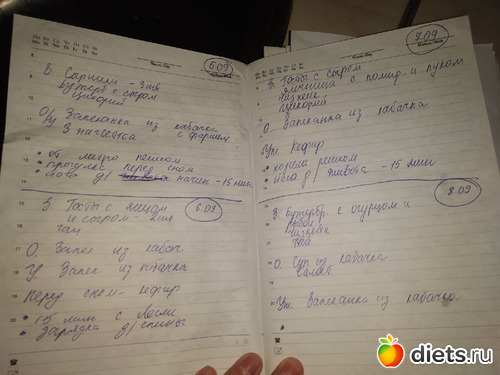 5.09
З. Сырники - 3 шт
бутерб с сыром
цикорий
О/ Запеканка из кабачка
У 3 наггетса с фаршем
• от метро пешком
• прогулка перед сном
• йога д/ начин - 15 мин
З. Тосты с яйцом
и сыром - 2 шт
чай
6.09
О. Запек из кабач
У. Запек из кабачка
Перед сном - кефир
• 15 мин с Лесли
• зарядка д/ спины
7.09
З. Тосты с сыром
яичница с помид и луком
цикорий
О. Запеканка из кабачка
Уж Кефир
• ходила пешком
• йога д/ живота - 15 мин
8.09
З. Бутербр с огурцом и
рыбой
чай
О. Суп из кабачка
салат
Уж Запеканка из кабачка
diets.ru